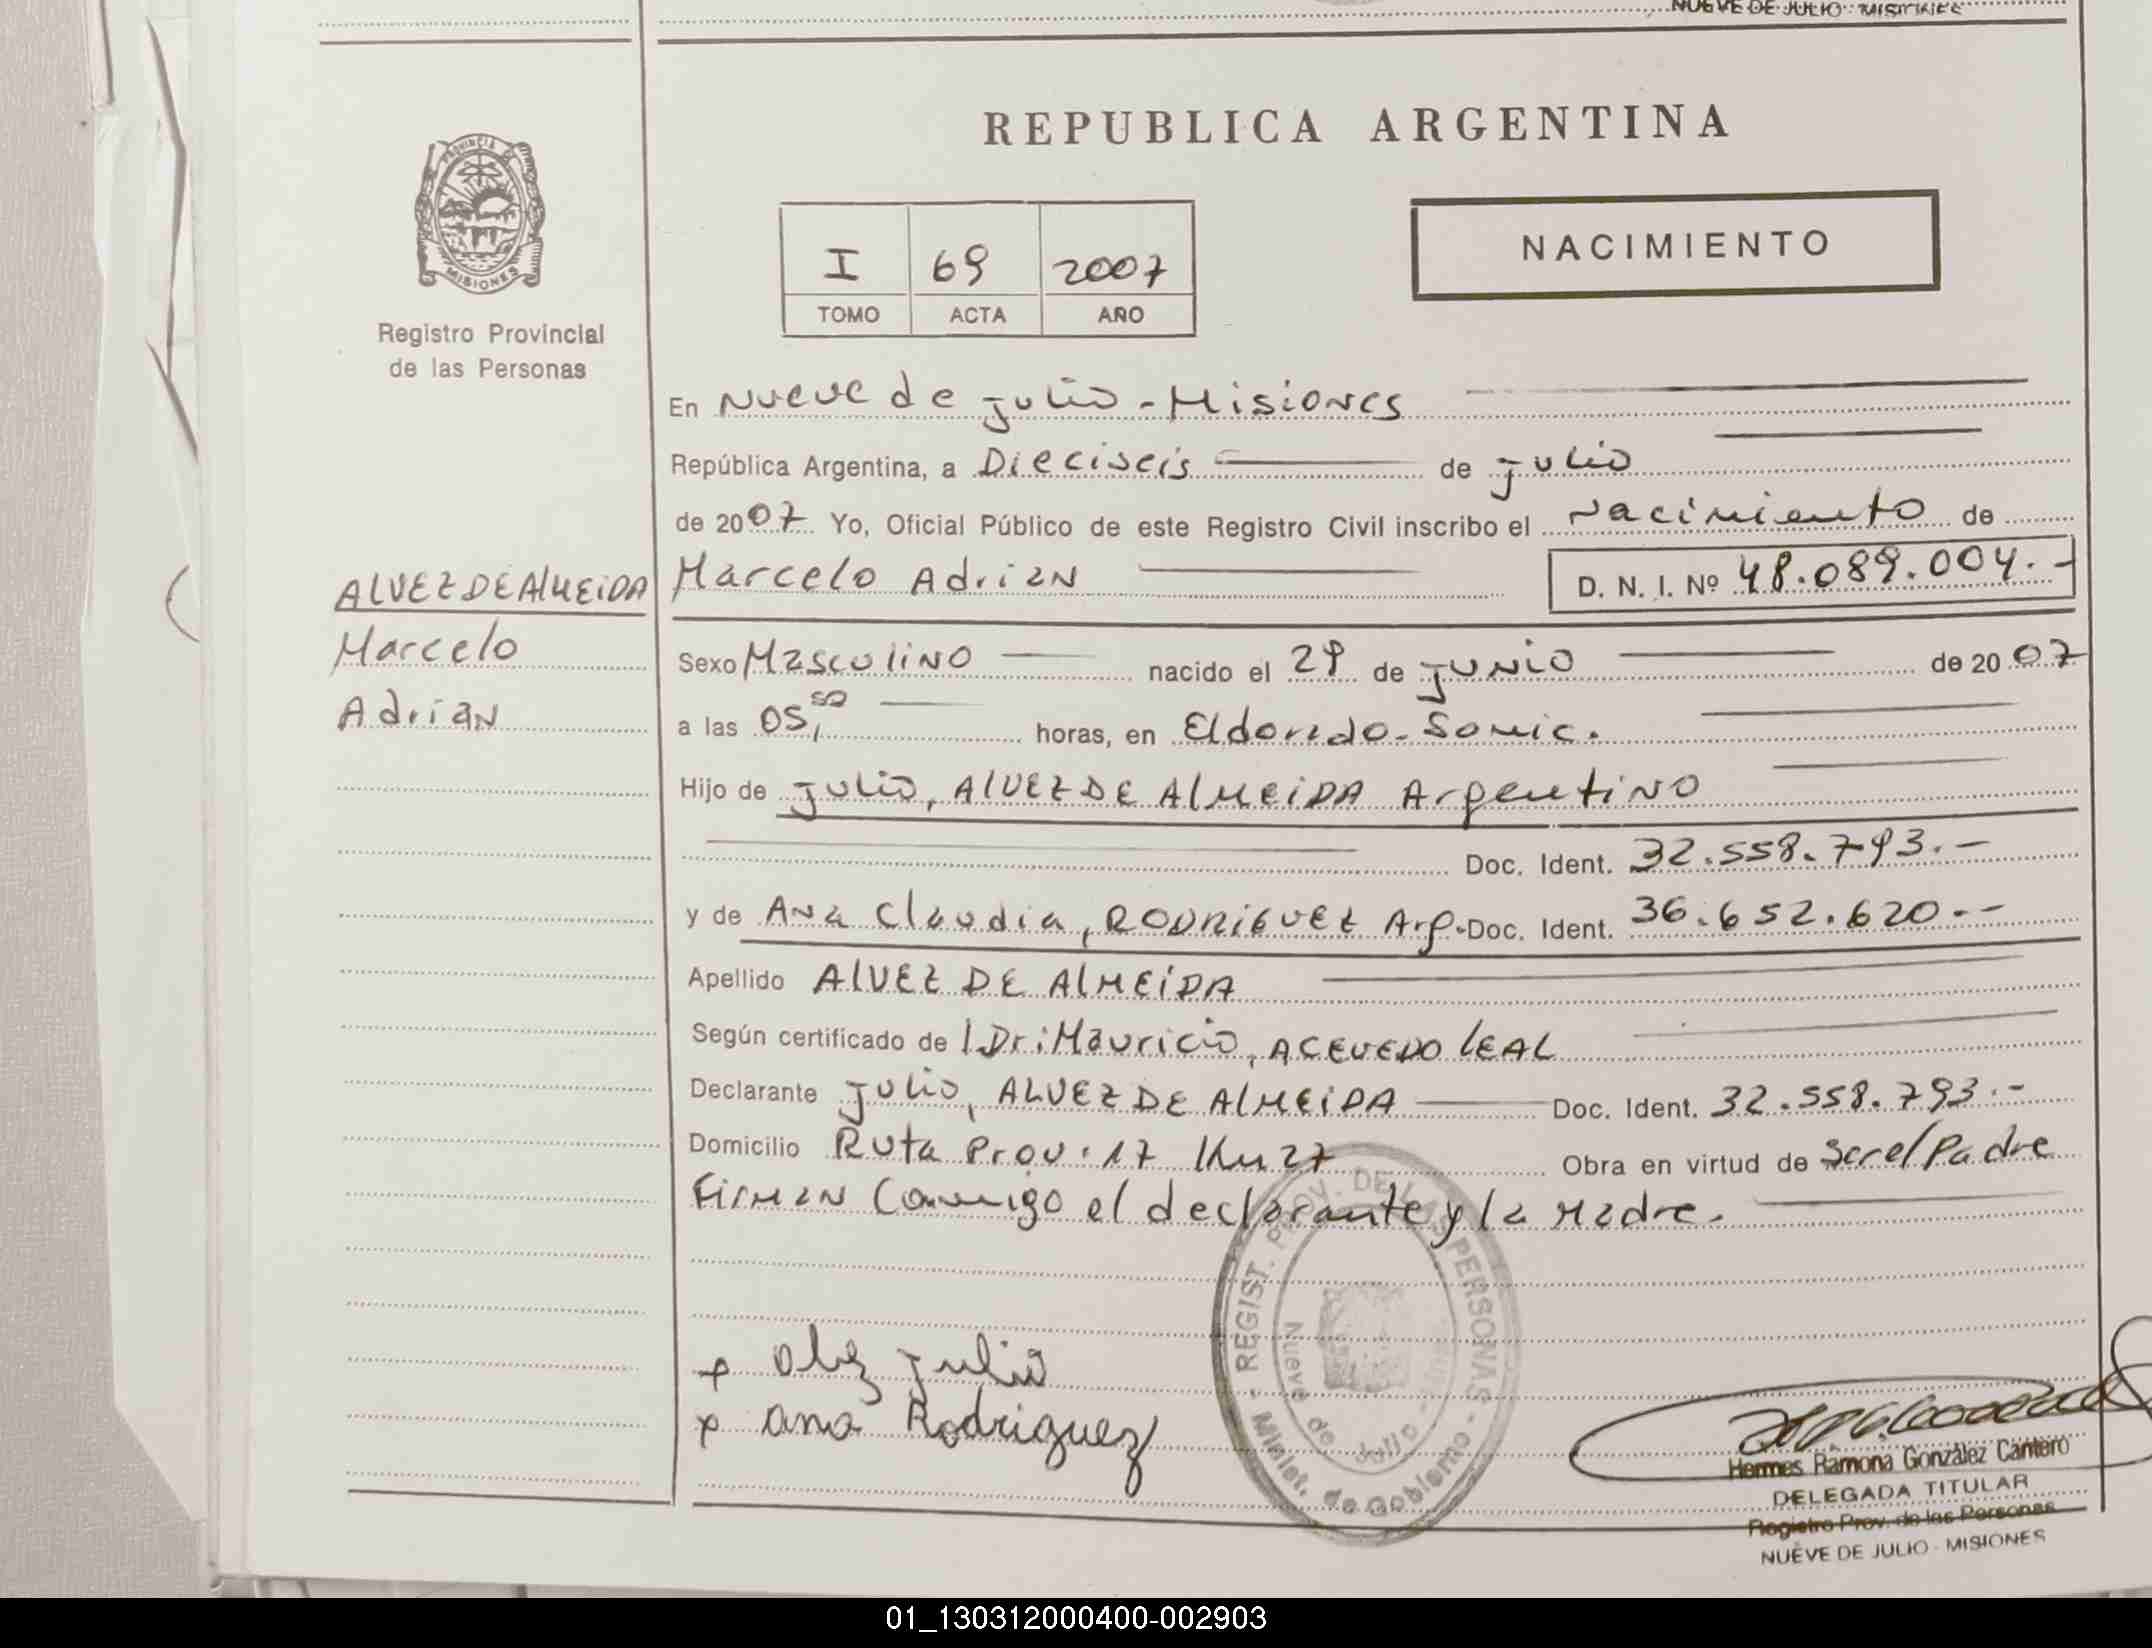 NUEVE DE JULIO - MISIONES
REPUBLICA ARGENTINA
PROVINCIA DE
MISIONES
Registro Provincial
de las Personas
I 69 2007
TOMO ACTA AÑO
NACIMIENTO
En Nueve de julio - Misiones
República Argentina, a Dieciseis de julio
de 2007 Yo, Oficial Público de este Registro Civil inscribo el Nacimiento de
ALVEZ DE AlMEiDA
Marcelo
Adrian
Marcelo Adrian D. N. I. Nº 48.089.004.-
Sexo Masculino nacido el 29 de junio de 2007
a las 05,50 horas, en Eldorado - Somic.
Hijo de julio, AlVEZ DE AlMEiDA Argentino
Doc. Ident. 32.558.793.-
y de Ana Claudia, RODRiGUEZ Arg. Doc. Ident. 36.652.620.-
Apellido AlVEZ DE AlMEiDA
Según certificado de l Dr: Mauricio, ACEVEDO LEAL
Declarante julio, ALVEZ DE AlMEiDA Doc. Ident. 32.558.793.-
Domicilio Ruta Prov. 17 Km 27 Obra en virtud de Ser el Padre
Firman Conmigo el declarante y la Madre.
REGIST. PROV. DE LAS PERSONAS
Nueve de Julio
Minist. de Gobierno
x julio
x ana Rodriguez
Hermes Ramona González Cantero
DELEGADA TITULAR
Registro Prov. de las Personas
NUEVE DE JULIO - MISIONES
01_130312000400-002903